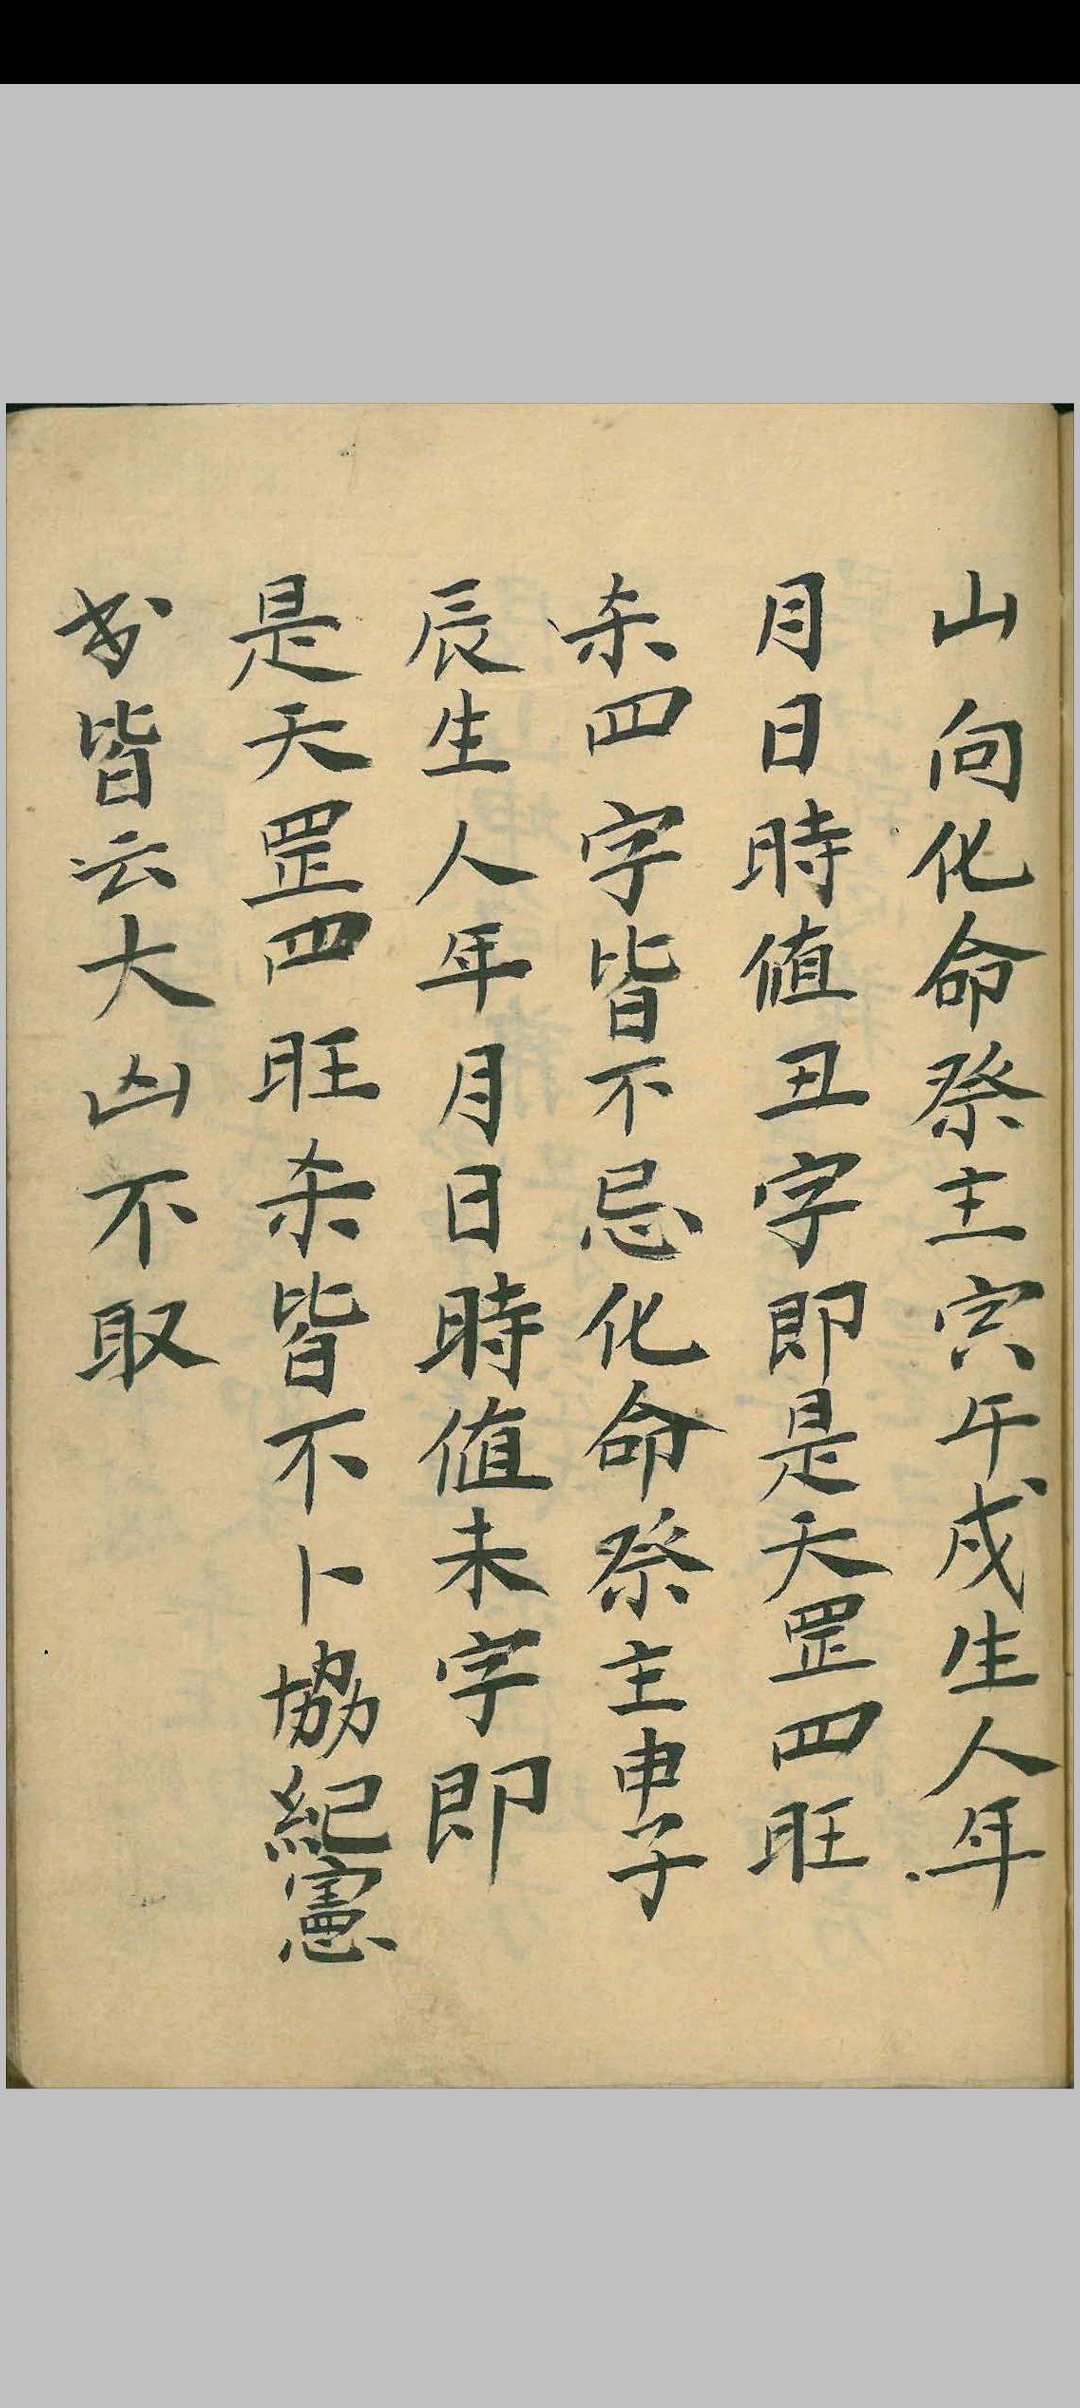 山向化命祭主寅午戌生人年
月日時値丑字即是天罡四旺
杀四字皆不忌化命祭主申子
辰生人年月日時値未字即
是天罡四旺杀皆不卜協紀憲
书皆云大凶不取